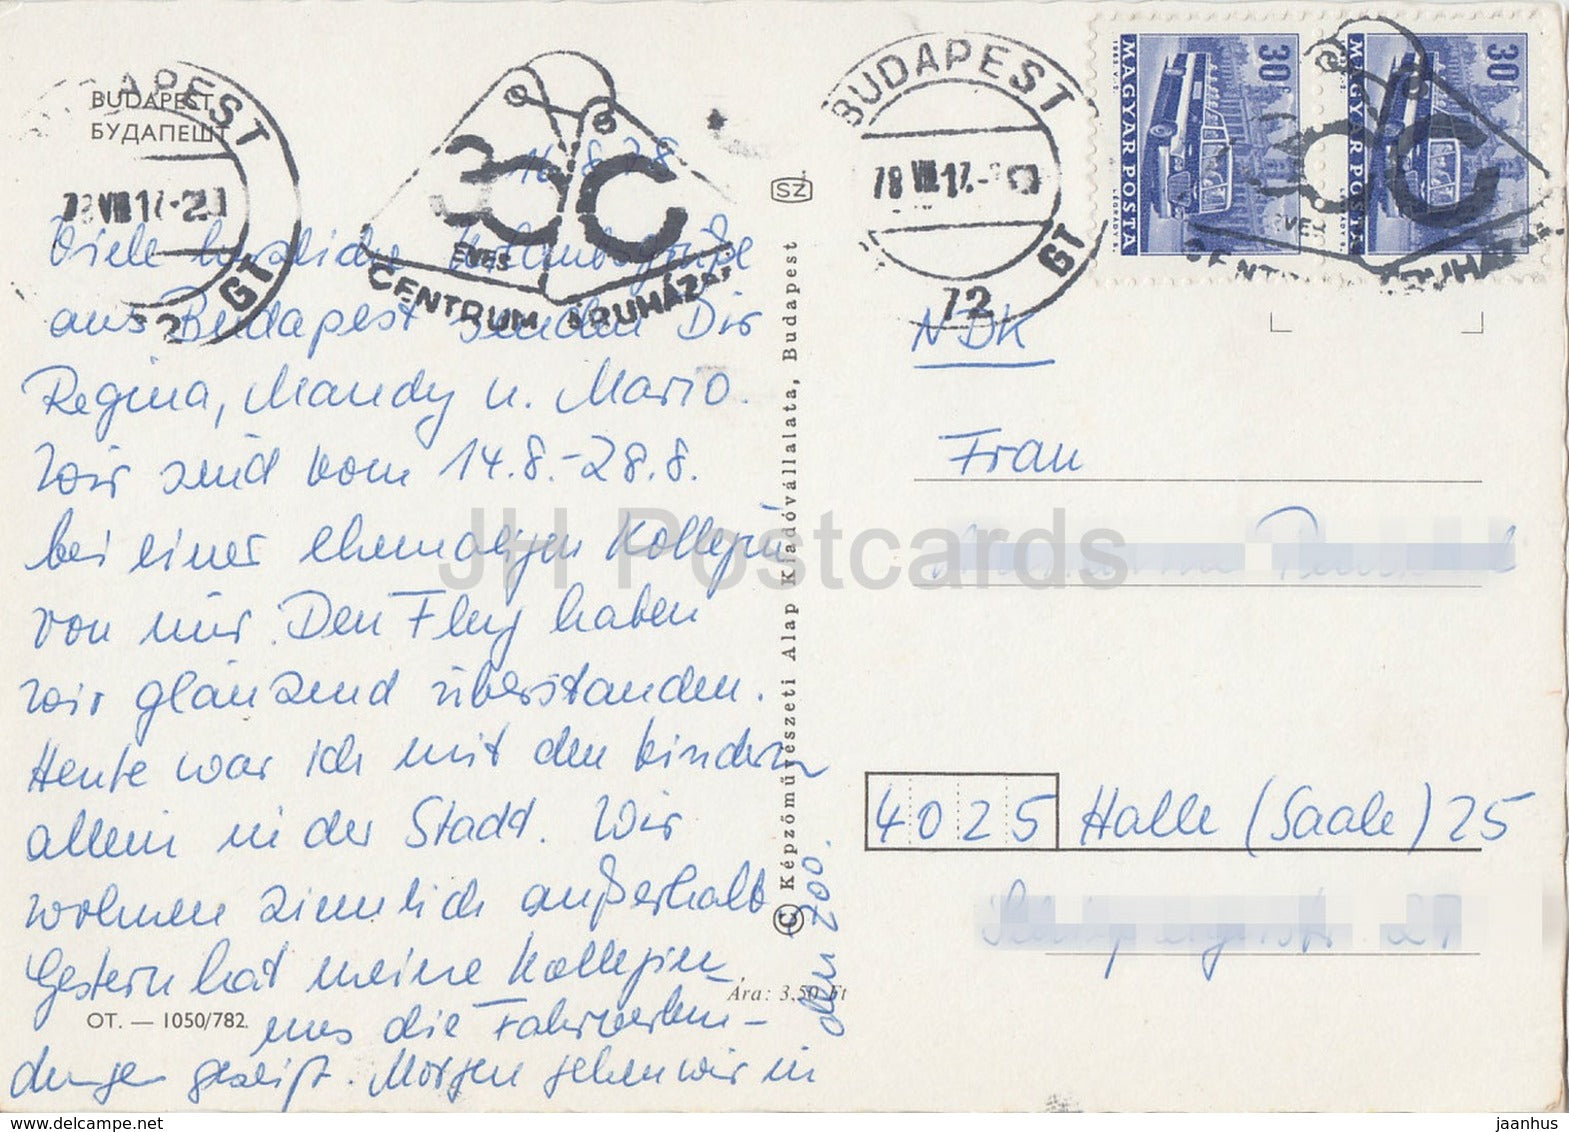 BUDAPEST
БУДАПЕШТ
BUDAPEST
78 VIII 17.-20
72 GT
30 ÉVES
CENTRUM ÁRUHÁZAK
BUDAPEST
78 VIII 17.-20
72 GT
30 ÉVES
CENTRUM ÁRUHÁZAK
30f
MAGYAR POSTA
LEGRÁDY S.
30f
MAGYAR POSTA
SZ
16.8.78
Viele herzliche Urlaubsgrüße
aus Budapest senden Dir
Regina, Mandy u. Mario.
Wir sind vom 14.8.-28.8.
bei einer ehemaligen Kollegin
von mir. Den Flug haben
wir glänzend überstanden.
Heute war ich mit den Kindern
allein in der Stadt. Wir
wohnen ziemlich außerhalb
Gestern hat meine Kollegin
uns die Fahrverbin-
dungen gezeigt. Morgen gehen wir in
den Zoo.
OT. — 1050/782
Ára: 3,50 Ft
© Képzőművészeti Alap Kiadóvállalata, Budapest
NDK
Frau
4025 Halle (Saale) 25
27
JH Postcards
www.hippostcard.com
jaanhus